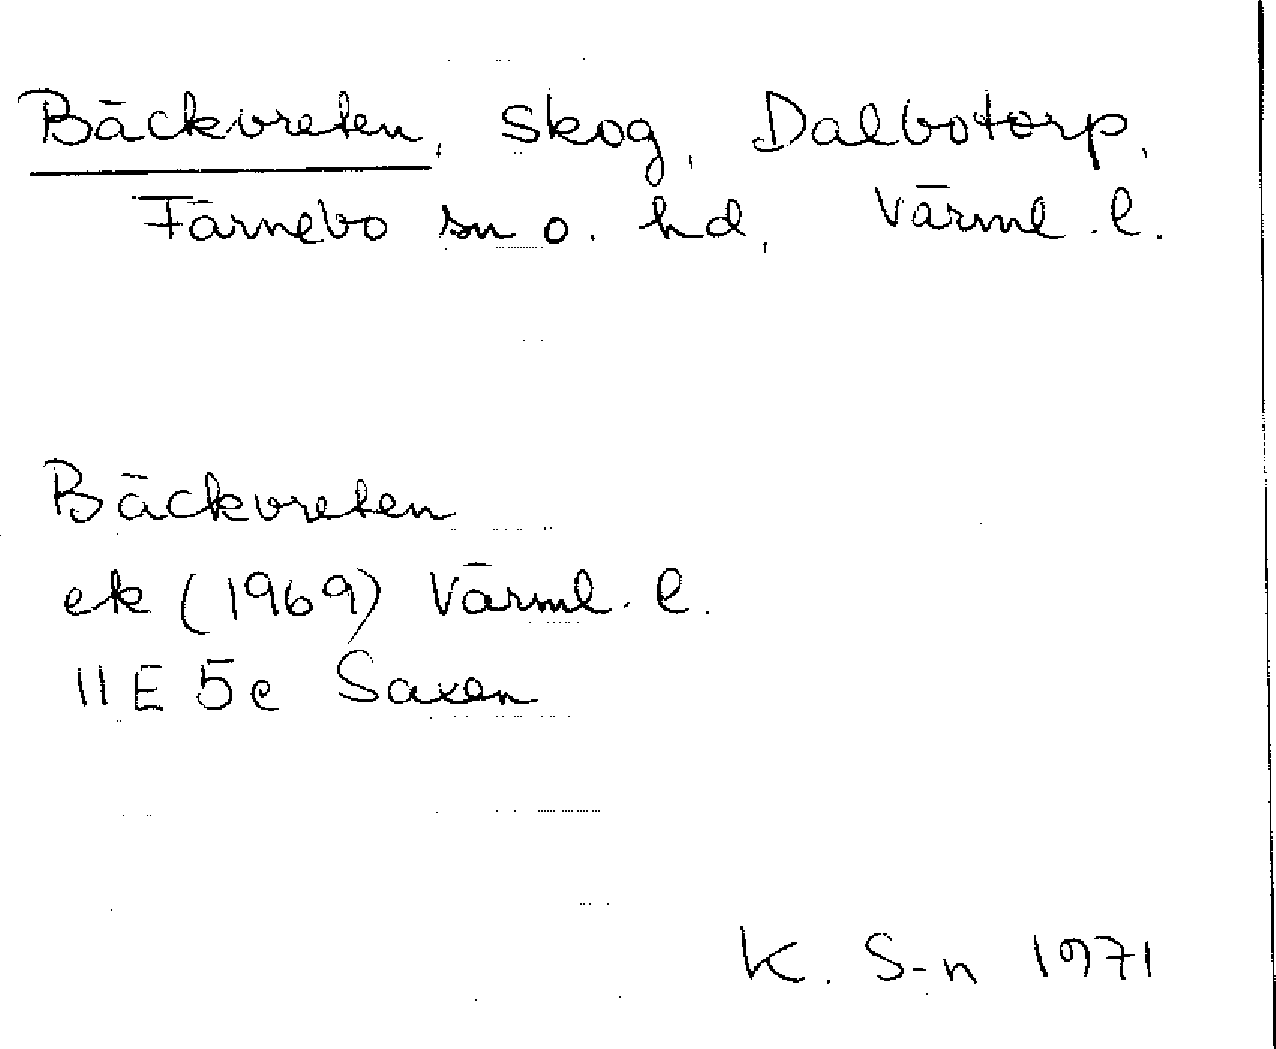 Bäckvreten, skog, Dalbotorp,
Färnebo sn o. hd, Värml. l.
Bäckvreten
ek (1969) Värml. l.
11E 5e Saxen
K. S-n 1971